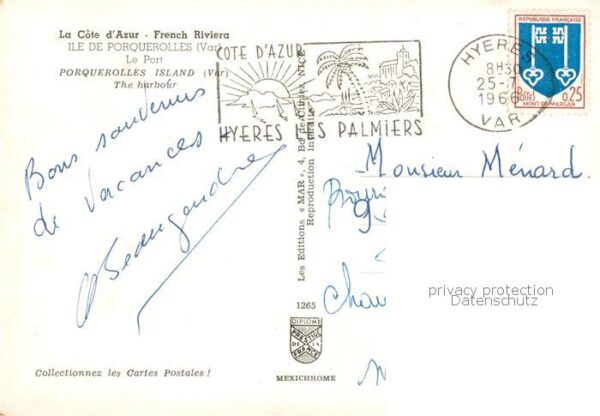 La Côte d'Azur - French Riviera
ILE DE PORQUEROLLES (Var)
Le Port
PORQUEROLLES ISLAND (Var)
The harbour
COTE D'AZUR
HYERES LES PALMIERS
HYERES
8H30
25-7
1966
VAR
REPUBLIQUE FRANÇAISE
POSTES
0,25
MONT-DE-MARSAN
Bons souvenirs
de Vacances
Monsieur Ménard.
9
Les Editions « MAR », 4, Bd de Cimiez, NICE
Reproduction interdite
1265
DIPLOME
PRESTIGE
DE LA
FRANCE
MEXICHROME
Collectionnez les Cartes Postales !
privacy protection
Datenschutz